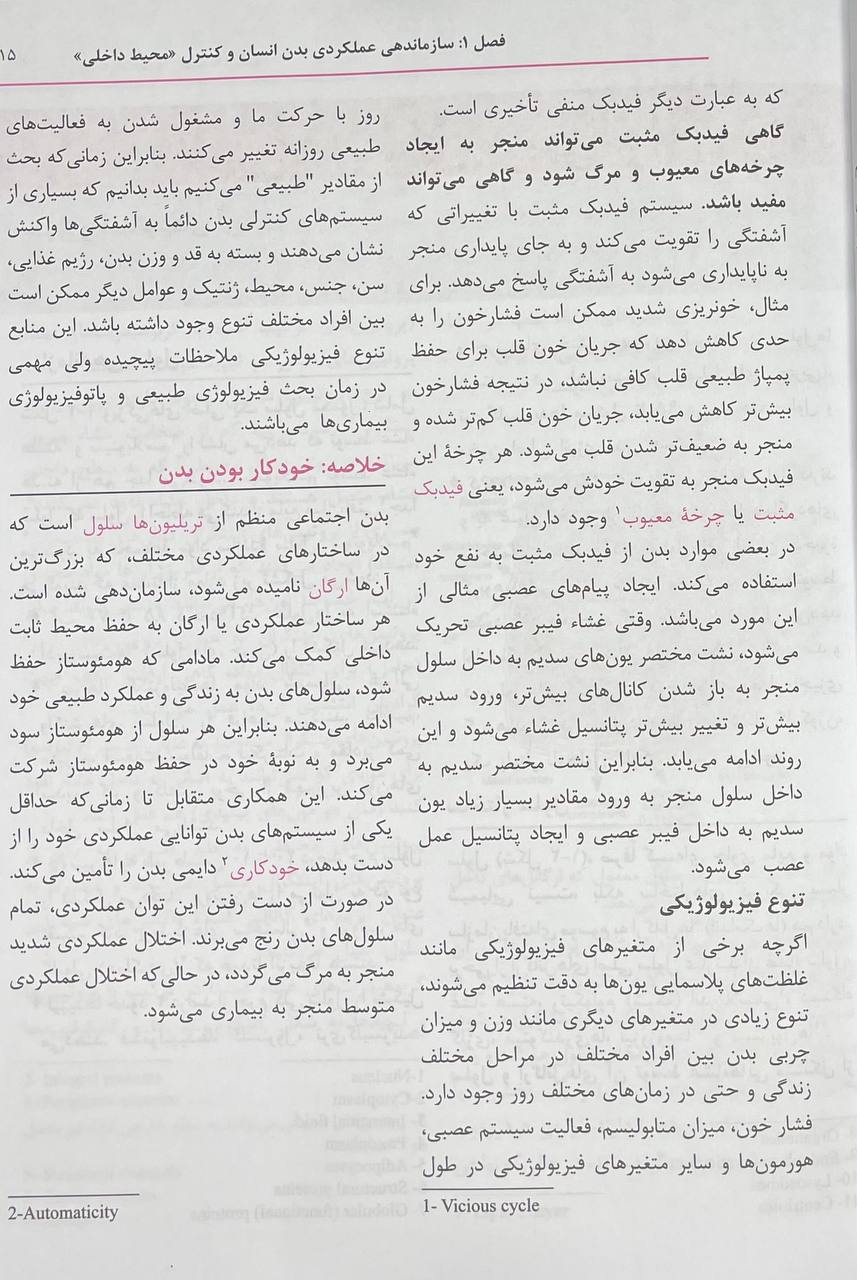 فصل ۱: سازماندهی عملکردی بدن انسان و کنترل «محیط داخلی»
۱۵
که به عبارت دیگر فیدبک منفی تأخیری است.
گاهی فیدبک مثبت می‌تواند منجر به ایجاد
چرخه‌های معیوب و مرگ شود و گاهی می‌تواند
مفید باشد. سیستم فیدبک مثبت با تغییراتی که
آشفتگی را تقویت می‌کند و به جای پایداری منجر
به ناپایداری می‌شود به آشفتگی پاسخ می‌دهد. برای
مثال، خونریزی شدید ممکن است فشارخون را به
حدی کاهش دهد که جریان خون قلب برای حفظ
پمپاژ طبیعی قلب کافی نباشد، در نتیجه فشارخون
بیش‌تر کاهش می‌یابد، جریان خون قلب کم‌تر شده و
منجر به ضعیف‌تر شدن قلب می‌شود. هر چرخهٔ این
فیدبک منجر به تقویت خودش می‌شود، یعنی فیدبک
مثبت یا چرخهٔ معیوب۱ وجود دارد.
در بعضی موارد بدن از فیدبک مثبت به نفع خود
استفاده می‌کند. ایجاد پیام‌های عصبی مثالی از
این مورد می‌باشد. وقتی غشاء فیبر عصبی تحریک
می‌شود، نشت مختصر یون‌های سدیم به داخل سلول
منجر به باز شدن کانال‌های بیش‌تر، ورود سدیم
بیش‌تر و تغییر بیش‌تر پتانسیل غشاء می‌شود و این
روند ادامه می‌یابد. بنابراین نشت مختصر سدیم به
داخل سلول منجر به ورود مقادیر بسیار زیاد یون
سدیم به داخل فیبر عصبی و ایجاد پتانسیل عمل
عصب می‌شود.
تنوع فیزیولوژیکی
اگرچه برخی از متغیرهای فیزیولوژیکی مانند
غلظت‌های پلاسمایی یون‌ها به دقت تنظیم می‌شوند،
تنوع زیادی در متغیرهای دیگری مانند وزن و میزان
چربی بدن بین افراد مختلف در مراحل مختلف
زندگی و حتی در زمان‌های مختلف روز وجود دارد.
فشار خون، میزان متابولیسم، فعالیت سیستم عصبی،
هورمون‌ها و سایر متغیرهای فیزیولوژیکی در طول
1- Vicious cycle
روز با حرکت ما و مشغول شدن به فعالیت‌های
طبیعی روزانه تغییر می‌کنند. بنابراین زمانی‌که بحث
از مقادیر "طبیعی" می‌کنیم باید بدانیم که بسیاری از
سیستم‌های کنترلی بدن دائماً به آشفتگی‌ها واکنش
نشان می‌دهند و بسته به قد و وزن بدن، رژیم غذایی،
سن، جنس، محیط، ژنتیک و عوامل دیگر ممکن است
بین افراد مختلف تنوع وجود داشته باشد. این منابع
تنوع فیزیولوژیکی ملاحظات پیچیده ولی مهمی
در زمان بحث فیزیولوژی طبیعی و پاتوفیزیولوژی
بیماری‌ها می‌باشند.
خلاصه: خودکار بودن بدن
بدن اجتماعی منظم از تریلیون‌ها سلول است که
در ساختارهای عملکردی مختلف، که بزرگ‌ترین
آن‌ها ارگان نامیده می‌شود، سازمان‌دهی شده است.
هر ساختار عملکردی یا ارگان به حفظ محیط ثابت
داخلی کمک می‌کند. مادامی که هومئوستاز حفظ
شود، سلول‌های بدن به زندگی و عملکرد طبیعی خود
ادامه می‌دهند. بنابراین هر سلول از هومئوستاز سود
می‌برد و به نوبهٔ خود در حفظ هومئوستاز شرکت
می‌کند. این همکاری متقابل تا زمانی‌که حداقل
یکی از سیستم‌های بدن توانایی عملکردی خود را از
دست بدهد، خودکاری۲ دایمی بدن را تأمین می‌کند.
در صورت از دست رفتن این توان عملکردی، تمام
سلول‌های بدن رنج می‌برند. اختلال عملکردی شدید
منجر به مرگ می‌گردد، در حالی‌که اختلال عملکردی
متوسط منجر به بیماری می‌شود.
2-Automaticity